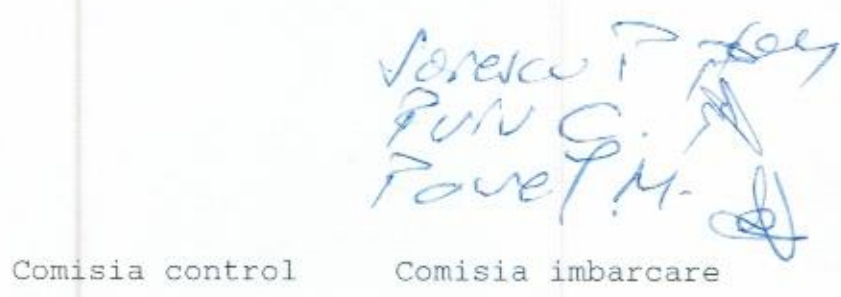 Sorescu P
Puiu C.
Pavel M.
Comisia control Comisia imbarcare